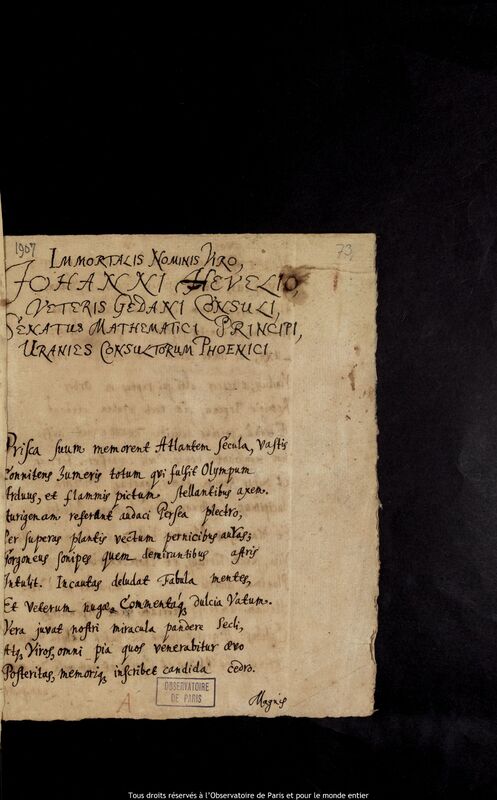 1907
73
IMMORTALIS NOMINIS VIRO,
JOHANNI HEVELIO,
VETERIS GEDANI CONSULI,
SENATUS MATHEMATICI PRINCIPI,
URANIES CONSULTORUM PHOENICI
Prisca suum memorent Atlantem secula, vastis
Connitens humeris totum qvi fulsit Olympum
Arduus, et flammis pictum stellantibus axem.
Aurigenam referant audaci Persea plectro,
Per superas plantis vectum pernicibus auras;
Gorgoneus sonipes quem demirantibus astris
Intulit. Incautas deludat Fabula mentes,
Et veterum nugae, Commentáq; dulcia Vatum.
Vera juvat nostri miracula pandere Secli,
Atq; Viros, omni pia quos venerabitur aevo
Posteritas, memoriq; inscribet candida cedro.
Magnis
A
OBSERVATOIRE
DE PARIS
Tous droits réservés à l'Observatoire de Paris et pour le monde entier